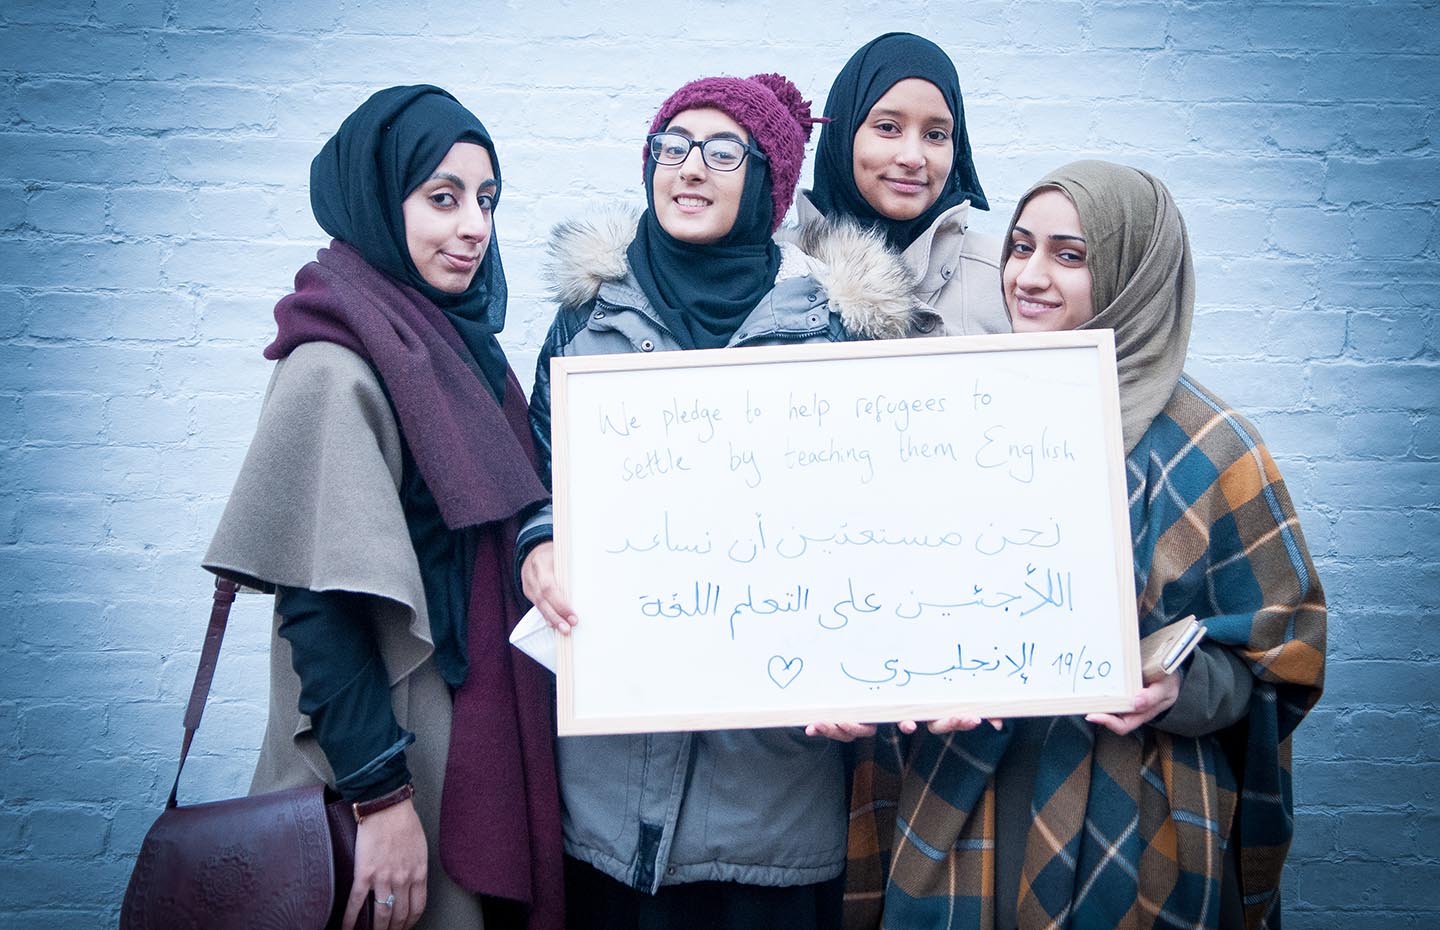 We pledge to help refugees to
settle by teaching them English
نحن مستعدّين أن نساعد
اللأجئين على التعلم اللغة
الإنجليزي 19/20